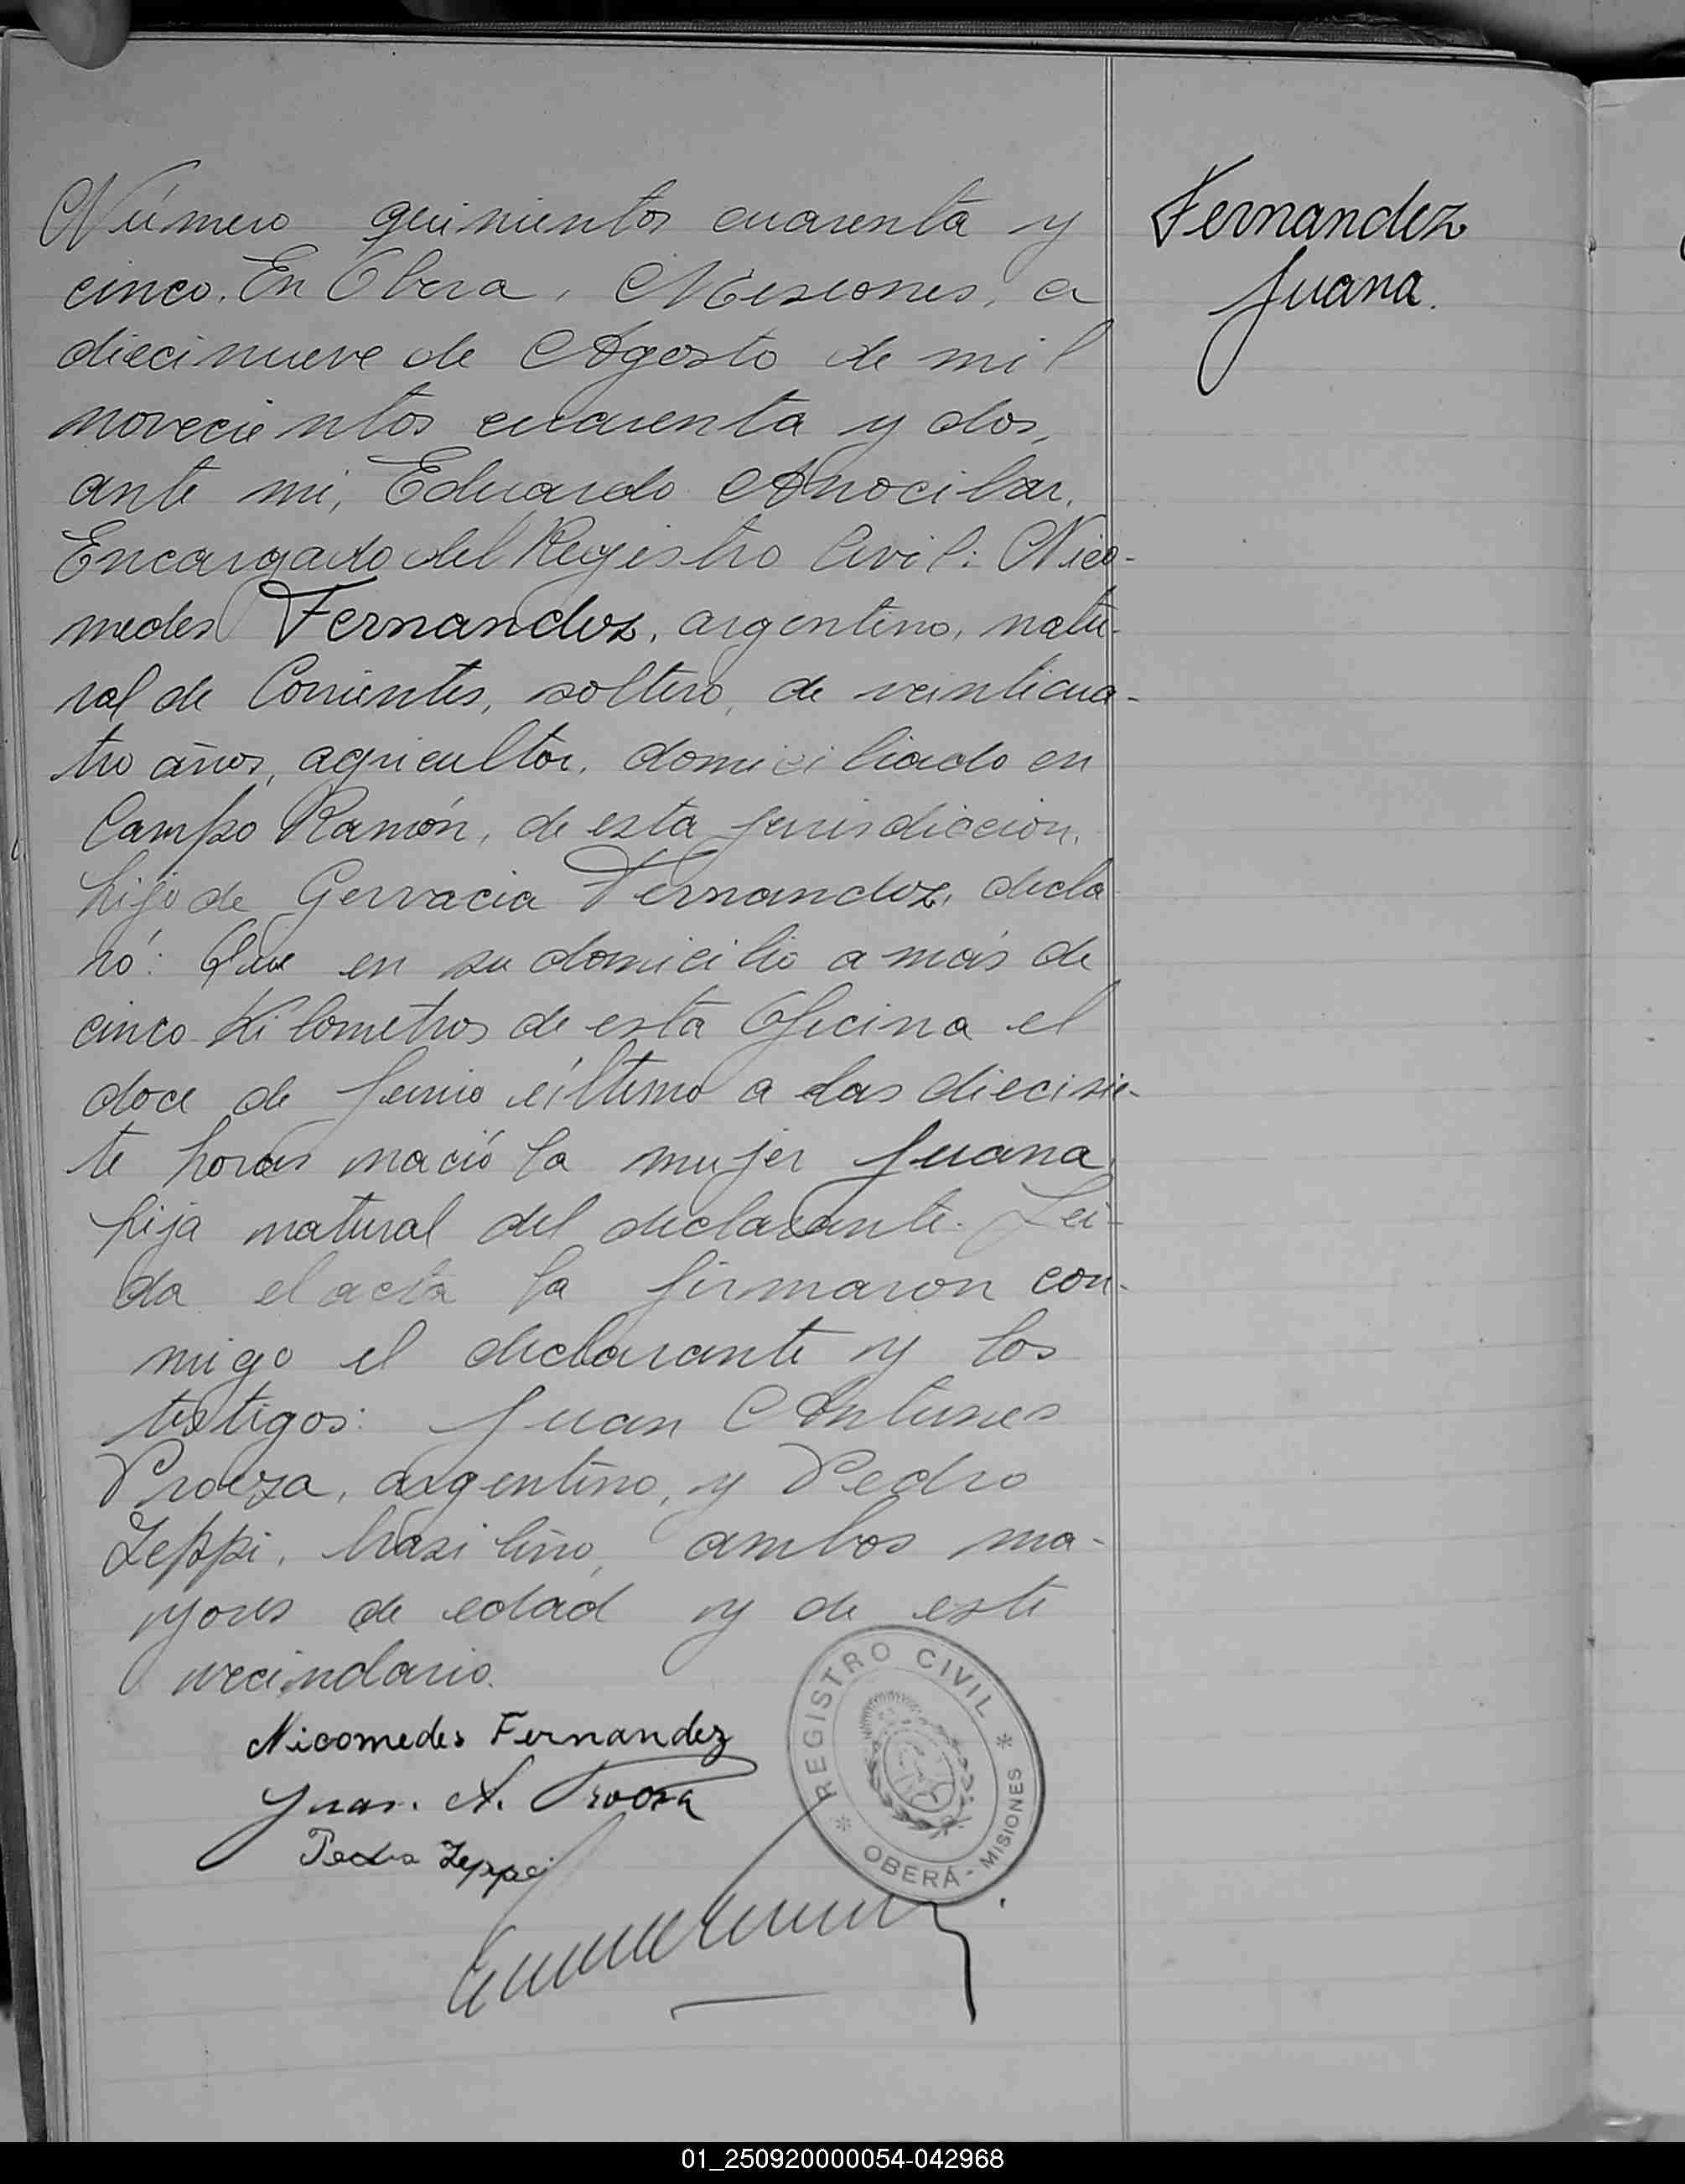 Número quinientos cuarenta y
cinco. En Obera, Misiones, a
diecinueve de Agosto de mil
novecientos cuarenta y dos,
ante mi, Eduardo Anocibar,
Encargado del Registro Civil: Nico-
medes Fernandez, argentino, natu-
ral de Corrientes, soltero, de veinticua-
tro años, agricultor, domiciliado en
Campo Ramón, de esta jurisdiccion,
hijo de Gervacia Fernandez, decla
ró: Que en su domicilio a más de
cinco Kilometros de esta Oficina el
doce de Junio último a las diecisie-
te horas nació la mujer Juana,
hija natural del declarante. Lei-
da el acta la firmaron con-
migo el declarante y los
testigos: Juan Antunes
Proenza, argentino, y Pedro
Zeppi, brasileño, ambos ma-
yores de edad y de este
vecindario.
Nicomedes Fernandez
Juan. A.
Pedro Zeppi
REGISTRO CIVIL
OBERÁ - MISIONES
Fernandez
Juana.
01_250920000054-042968